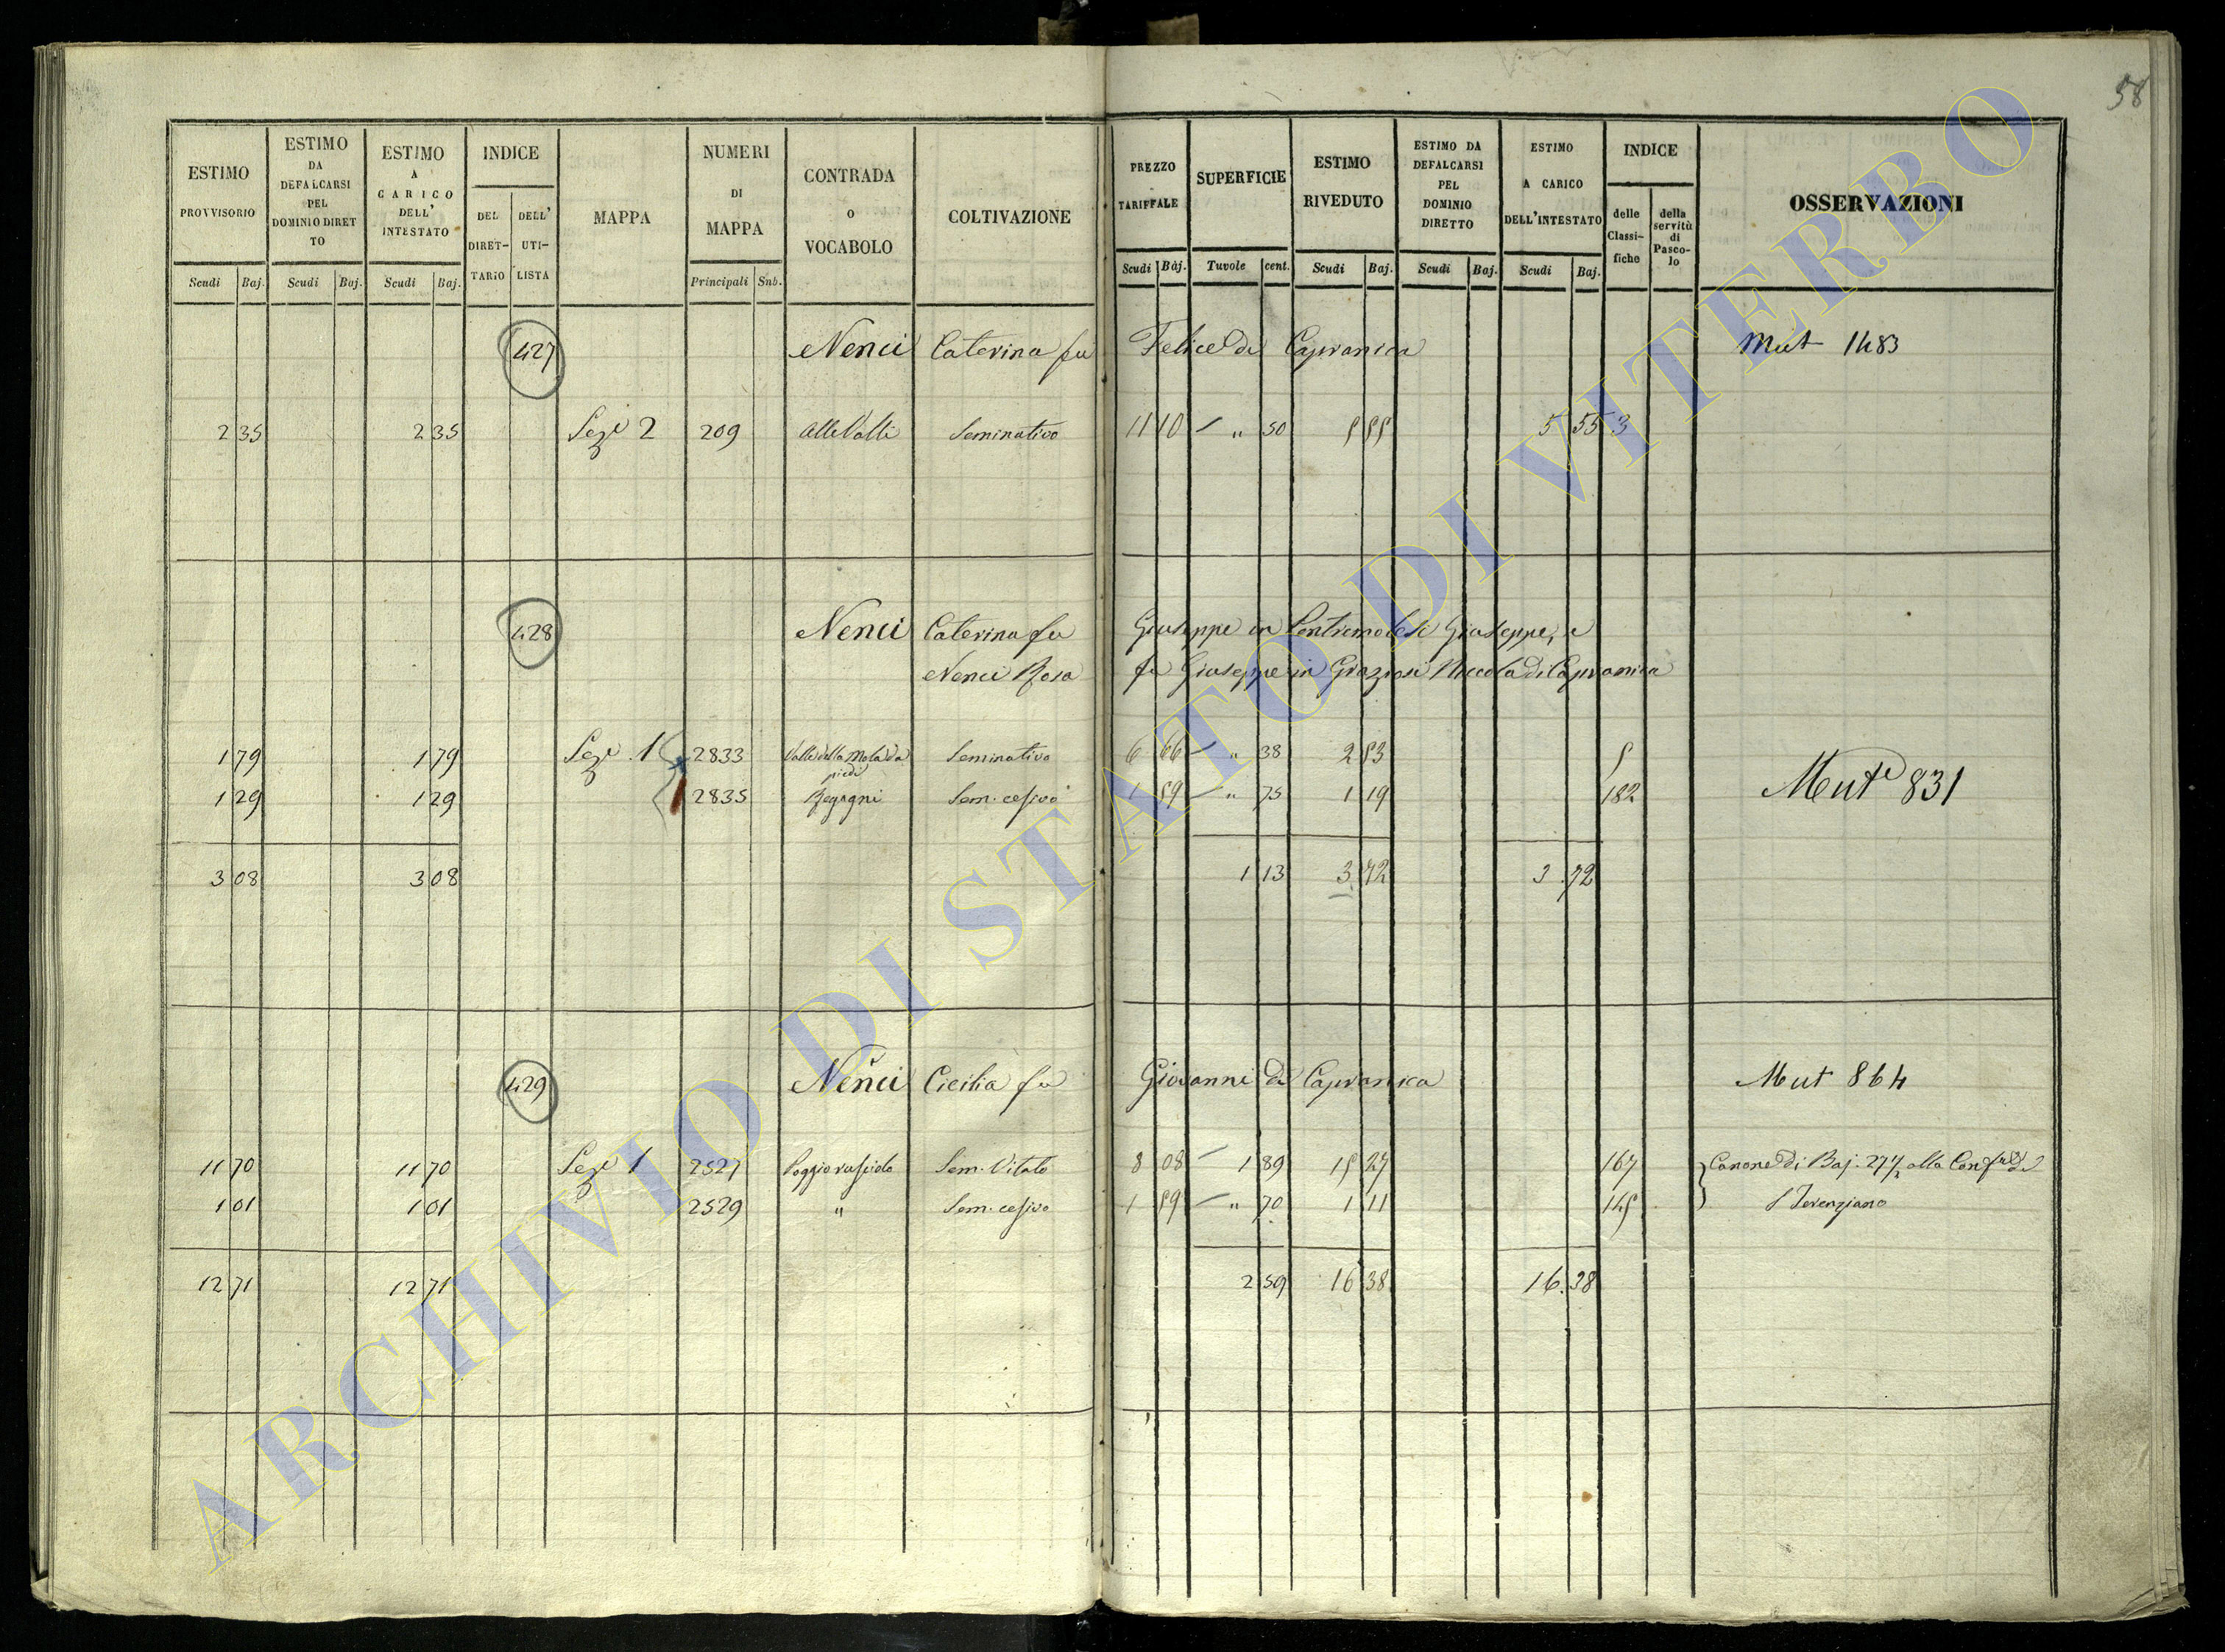 58
ESTIMO PROVVISORIO Scudi Baj.
ESTIMO DA DEFALCARSI PEL DOMINIO DIRETTO Scudi Baj.
ESTIMO A CARICO DELL' INTESTATO Scudi Baj.
INDICE DEL DIRET-TARIO DELL' UTI-LISTA
MAPPA
NUMERI DI MAPPA Principali Sub.
CONTRADA O VOCABOLO
COLTIVAZIONE
PREZZO TARIFFALE Scudi Baj.
SUPERFICIE Tavole cent.
ESTIMO RIVEDUTO Scudi Baj.
ESTIMO DA DEFALCARSI PEL DOMINIO DIRETTO Scudi Baj.
ESTIMO A CARICO DELL'INTESTATO Scudi Baj.
INDICE delle Classi-fiche della servitù di Pasco-lo
OSSERVAZIONI
427 Nenci Caterina fu Felice di Capranica Mut 1483
2 35 2 35 Sez.e 2 209 alle Valli Seminativo 11 10 " 50 5 55 5 55 3
428 Nenci Caterina fu Giuseppe in Pontremolesi Giuseppe, e
Nenci Rosa fu Giuseppe in Graziosi Niccola di Capranica
1 79 1 79 Sez.e 1 2833 Valle della Mola da piedi Seminativo 6 66 " 38 2 53 5
1 29 1 29 2835 Sem. cesivo 1 59 " 75 1 19 182 Mut.e 831
3 08 3 08 1 13 3 72 3 72
429 Nenci Cicilia fu Giovanni di Capranica Mut 864
11 70 11 70 Sez.e 1 2527 Poggio Sem. Vitato 8 08 1 89 15 27 167 Canone di Baj. 27½ alla Conf.ta di
1 01 1 01 2529 " Sem. cesivo 1 59 " 70 1 11 145 S Terenziano
12 71 12 71 2 59 16 38 16.38
ARCHIVIO DI STATO DI VITERBO